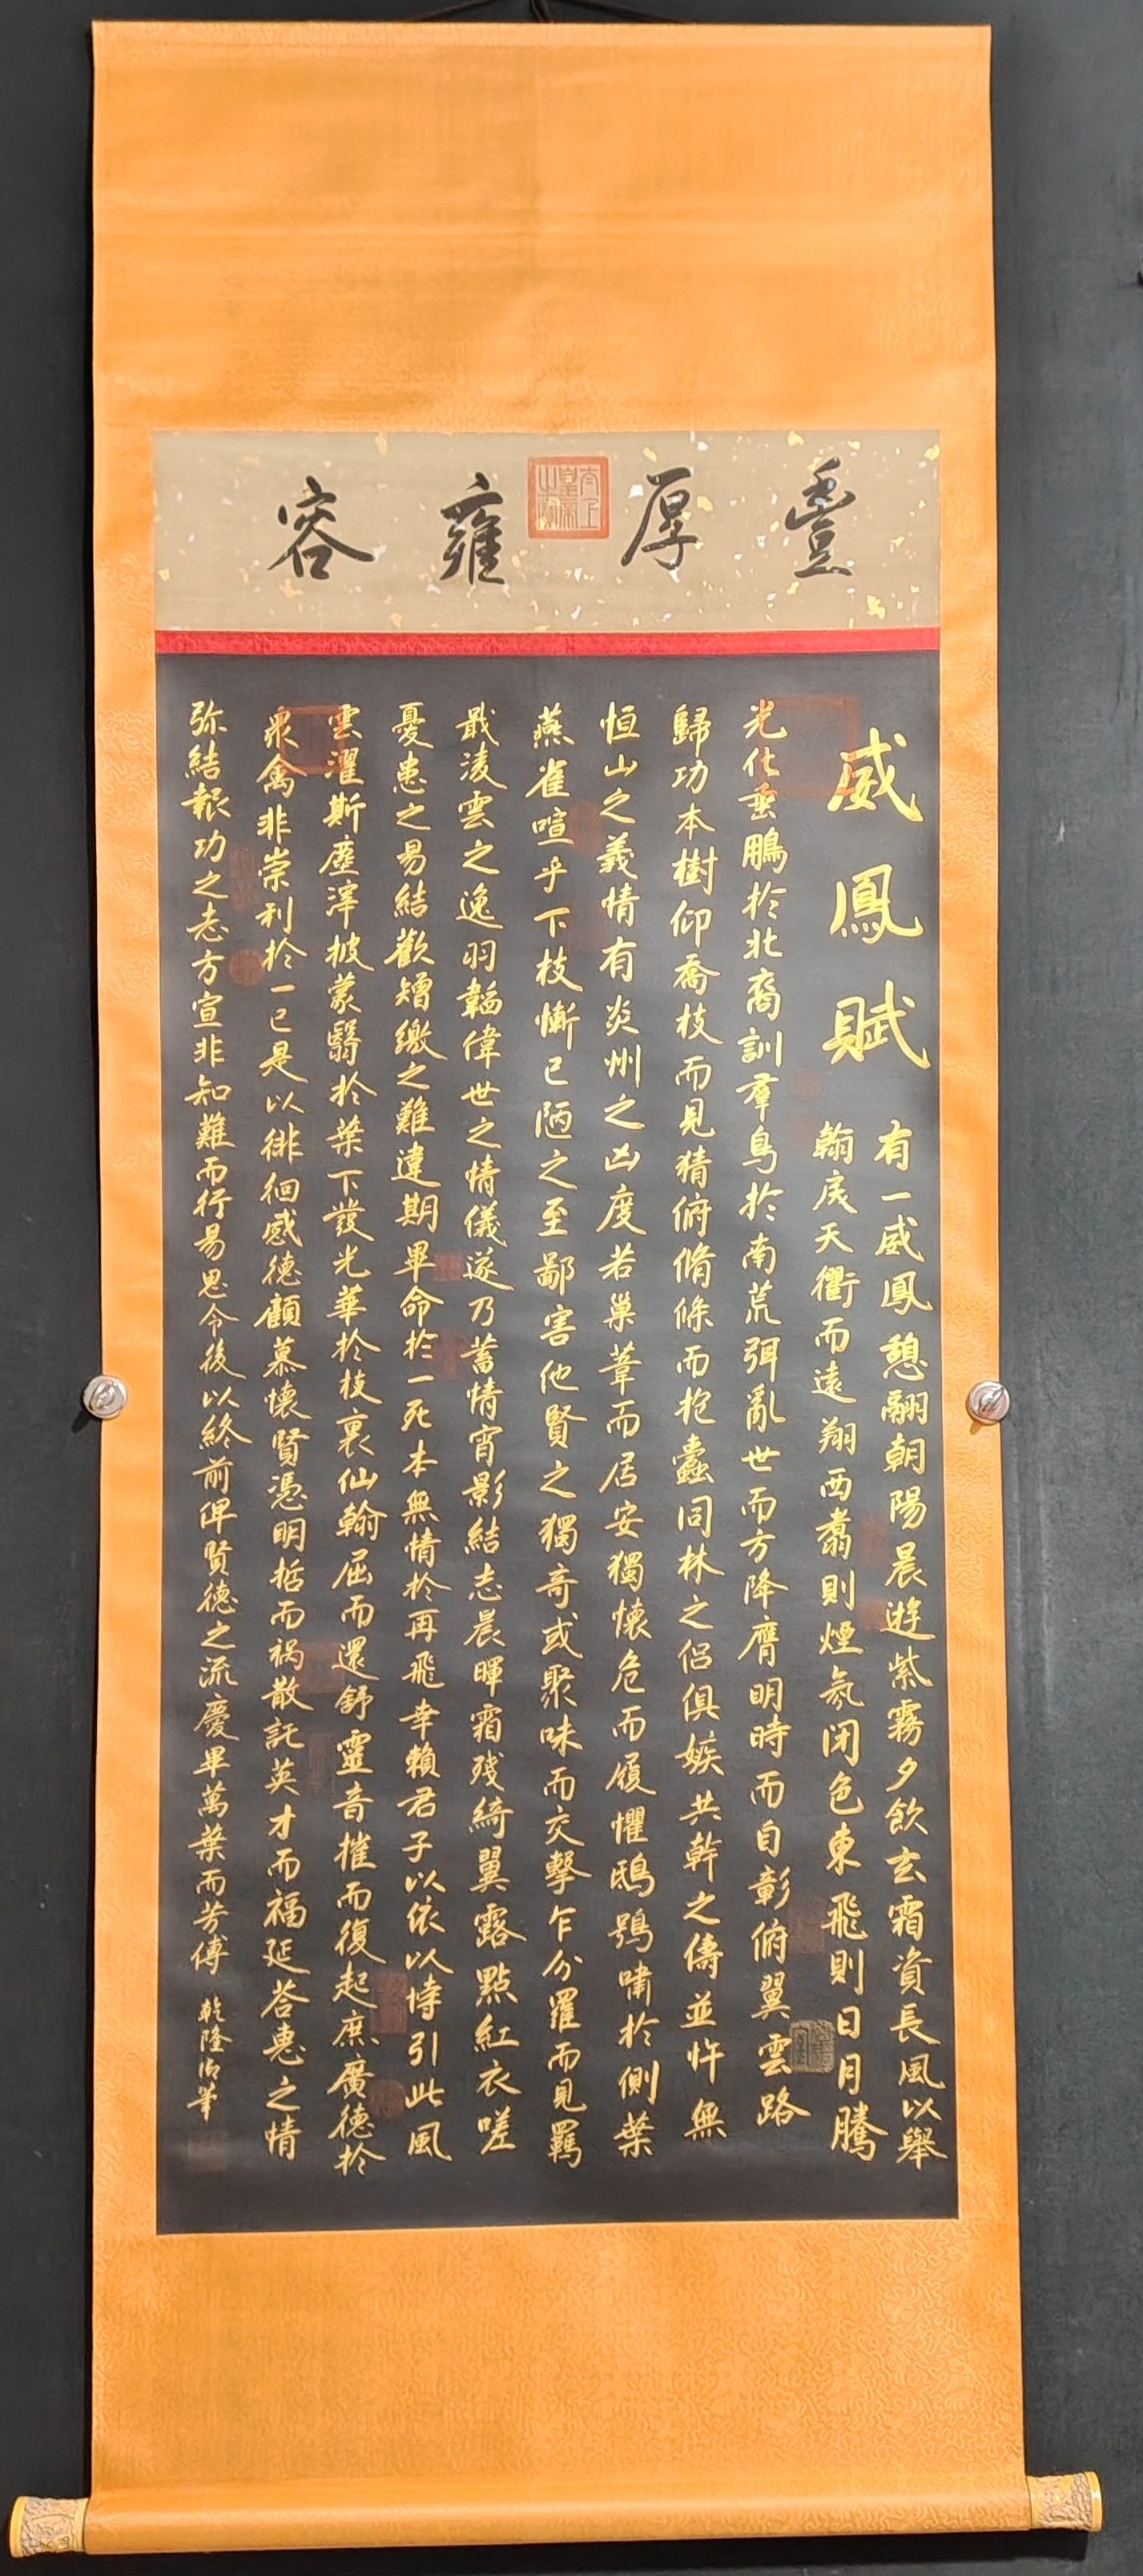 豐厚雍容
太上皇帝之寶
威鳳賦
有一威鳳憩翮朝陽晨遊紫霧夕飲玄霜資長風以舉
翰戾天衢而遠翔西翥則煙氛闭色東飛則日月騰
光化垂鵬於北裔訓羣鳥於南荒弭亂世而方降膺明時而自彰俯翼雲路
歸功本樹仰喬枝而見猜俯脩條而抱蠹同林之侶俱嫉共幹之儔並忤無
恒山之義情有炎州之凶度若巢葦而居安獨懷危而履懼鴟鴞嘯於側葉
燕雀喧乎下枝慚已陋之至鄙害他賢之獨奇或聚味而交擊乍分羅而見羈
戢淩雲之逸羽韜偉世之情儀遂乃蓄情宵影結志晨暉霜殘綺翼露點紅衣嗟
憂患之易結歡矰繳之難違期畢命於一死本無情於再飛幸賴君子以依以恃引此風
雲濯斯塵滓披蒙翳於葉下發光華於枝裏仙翰屈而還舒靈音摧而復起庶廣德於
衆禽非崇利於一己是以徘徊感德顧慕懷賢憑明哲而祸散託英才而福延荅惠之情
弥結報功之志方宣非知難而行易思令後以終前俾賢德之流慶畢萬葉而芳傅
乾隆御筆